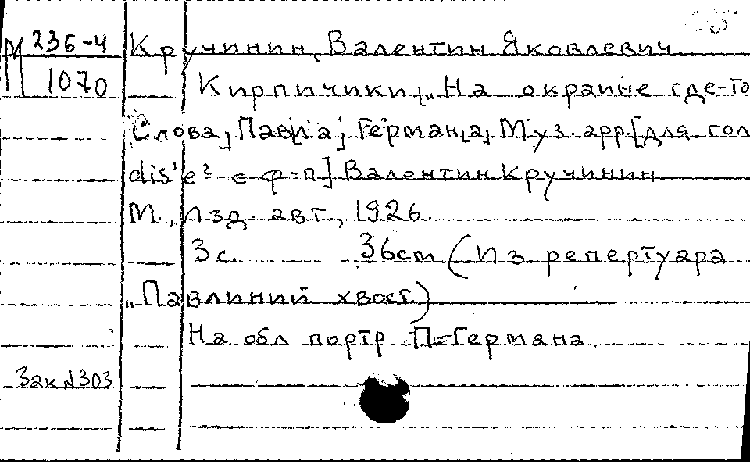 М 236-4 Кручинин, Валентин Яковлевич
1070 Кирпичики, „На окраине где-то
Слова, Павла, Германа, Муз. арр [для гол
dis'e² с ф-п] Валентин Кручинин
М., Изд. авт, 1926.
3 с. 36cm (Из репертуара
„Павлиний хвост)
На обл портр П. Германа.
Зак №303